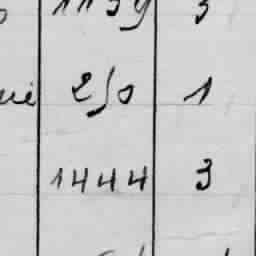 1139 3
250 1
1444 3